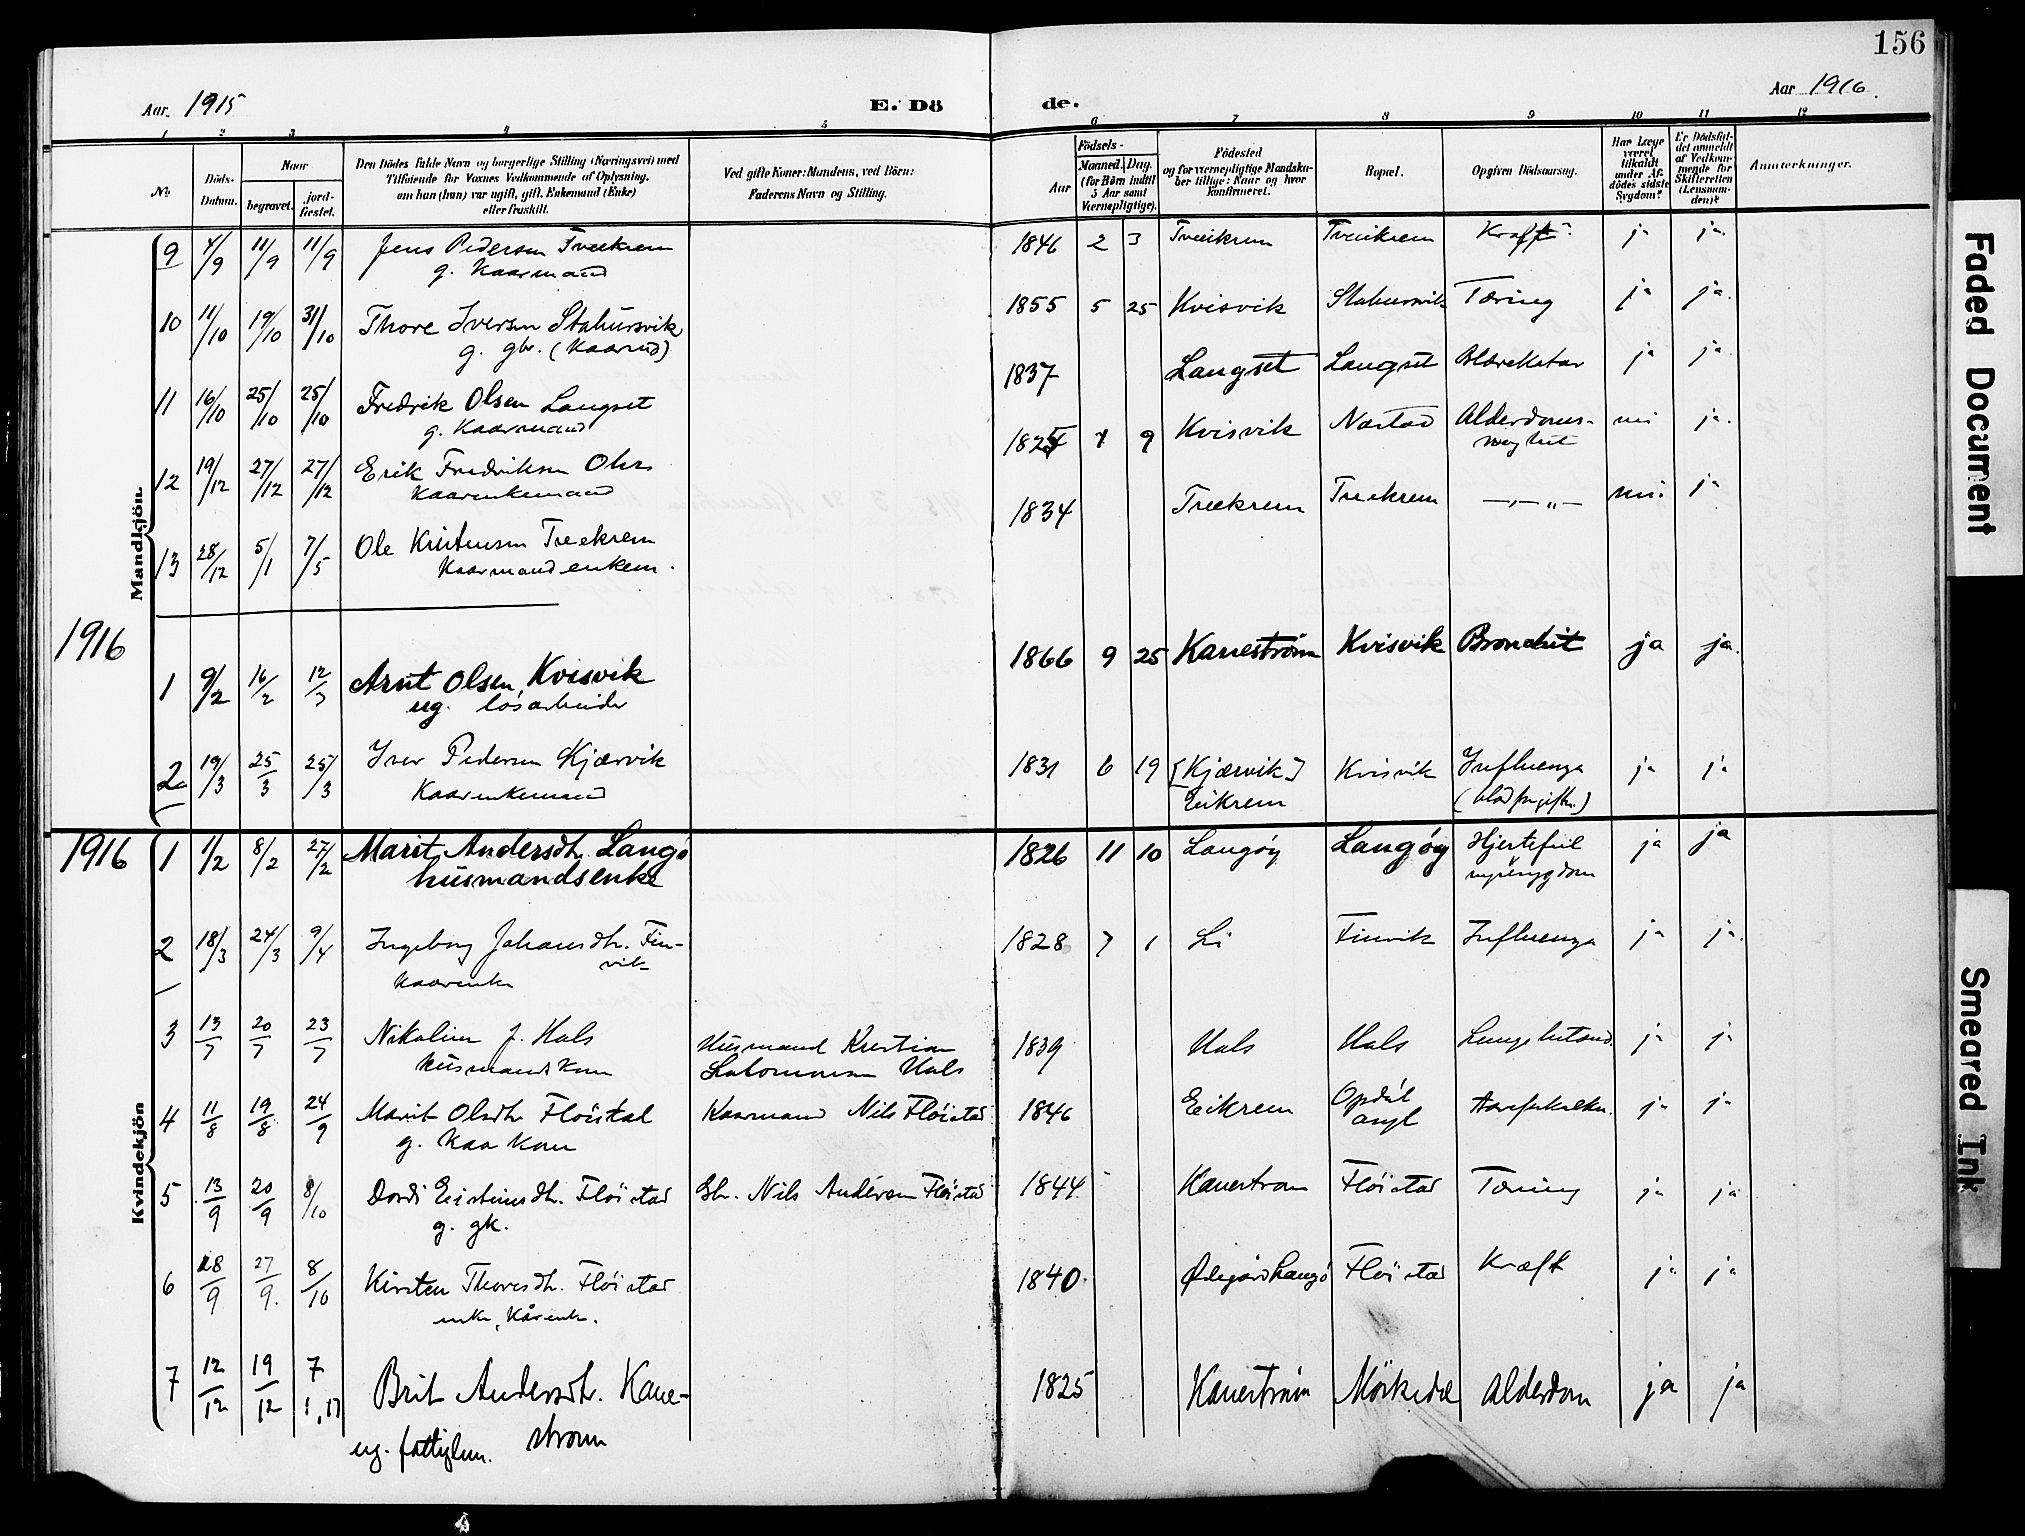 156
Aar. 1915
E. Dö
de.
Aar 1916.
1 2 3 4 5 6 7 8 9 10 11 12
No
Döds-
Datum.
Naar
begravet.
jord-
fæstet.
Den Dödes fulde Navn og borgerlige Stilling (Næringsvei) med
Tilföiende for Voxnes Vedkommende af Oplysning,
om han (hun) var ugift, gift, Enkemand (Enke)
eller fraskilt.
Ved gifte Koner: Mandens, ved Börn:
Faderens Navn og Stilling.
Födsels-
Aar
Maaned. Dag.
(for Börn indtil
5 Aar samt
Værnepligtige).
Födested
og for værnepligtige Mandska-
ber tillige: Naar og hvor
konfirmeret.
Bopæl.
Opgiven Dödsaarsag.
Har Læge
været
tilkaldt
under Af-
dödes sidste
Sygdom?
Er Dödsfal-
det anmeldt
af Vedkom-
mende for
Skifteretten
(Lensman-
den)?
Anmærkninger.
Mandkjön.
9 4/9 11/9 11/9 Jens Pedersen Tveekrem 1846 2 3 Tveeikrem Tveeikrem Kræft ja ja.
g. Kaarmand
10 11/10 19/10 31/10 Thore Iversen Stahursvik 1855 5 25 Kvisvik Stahursvik Tæring ja ja.
g. gbr. (Kaarmd)
11 16/10 25/10 25/10 Fredrik Olsen Langset 1837 Langset Langset Blærekatar ja ja.
g. Kaarmand
12 19/12 27/12 27/12 Erik Fredriksen 9 Kvisvik Nastad Alderdoms- nei ja.
Kaarenkemand
13 28/12 5/1 7/5 Ole Kristensen Treekrem 1834 Treekrem Treekrem —„— nei ja
Kaarmand enkem.
1916
1 9/2 16/2 12/3 Arnt Olsen Kvisvik 1866 9 25 Kanestrøm Kvisvik Bronchit ja ja.
ug. løsarbeider
2 19/3 25/3 25/3 Iver Pedersen Kjærvik 1831 6 19 [Kjærvik] Kvisvik Influenza ja ja
Kaarenkemand Eikrem (blodforgiftn.)
1916
Kvindekjön
1 1/2 8/2 27/2 Marit Andersdtr. Langø 1826 11 10 Langøy Langøy Hjertefeil ja ja
husmandsenke nyresygdom
2 18/3 24/3 9/4 Ingeborg Johansdtr. Fin- 1828 7 1 Li Finvik Influenza ja ja.
vik
Kaarenke
3 13/7 20/7 23/7 Nikoline J. Hals Husmand Kristian 1839 Hals Hals ja ja
husmandskone Salomonsen Hals
4 11/8 19/8 24/9 Marit Olsdtr Fløistad Kaarmand Nils Fløistad 1846 Eikrem Opdøl ja ja
g. Kaa Kone asyl
5 13/9 20/9 8/10 Dordi Eisteinsdtr. Fløistad Gbr. Nils Andersen Fløistad 1844 Kanestrøm Fløistad Tæring ja ja
g. gk.
6 18/9 27/9. 8/10 Kirsten Thoresdtr. Fløistad 1840 Ødegård Langø Fløistad Kræft ja ja
enke, Kårenke.
7 12/12 19/12 7/1,17 Brit Andersdtr. Kane- 1825 Kanestrøm Mørkedal Alderdom ja ja
ug. fattiglem. strøm
Faded Document
Smeared Ink